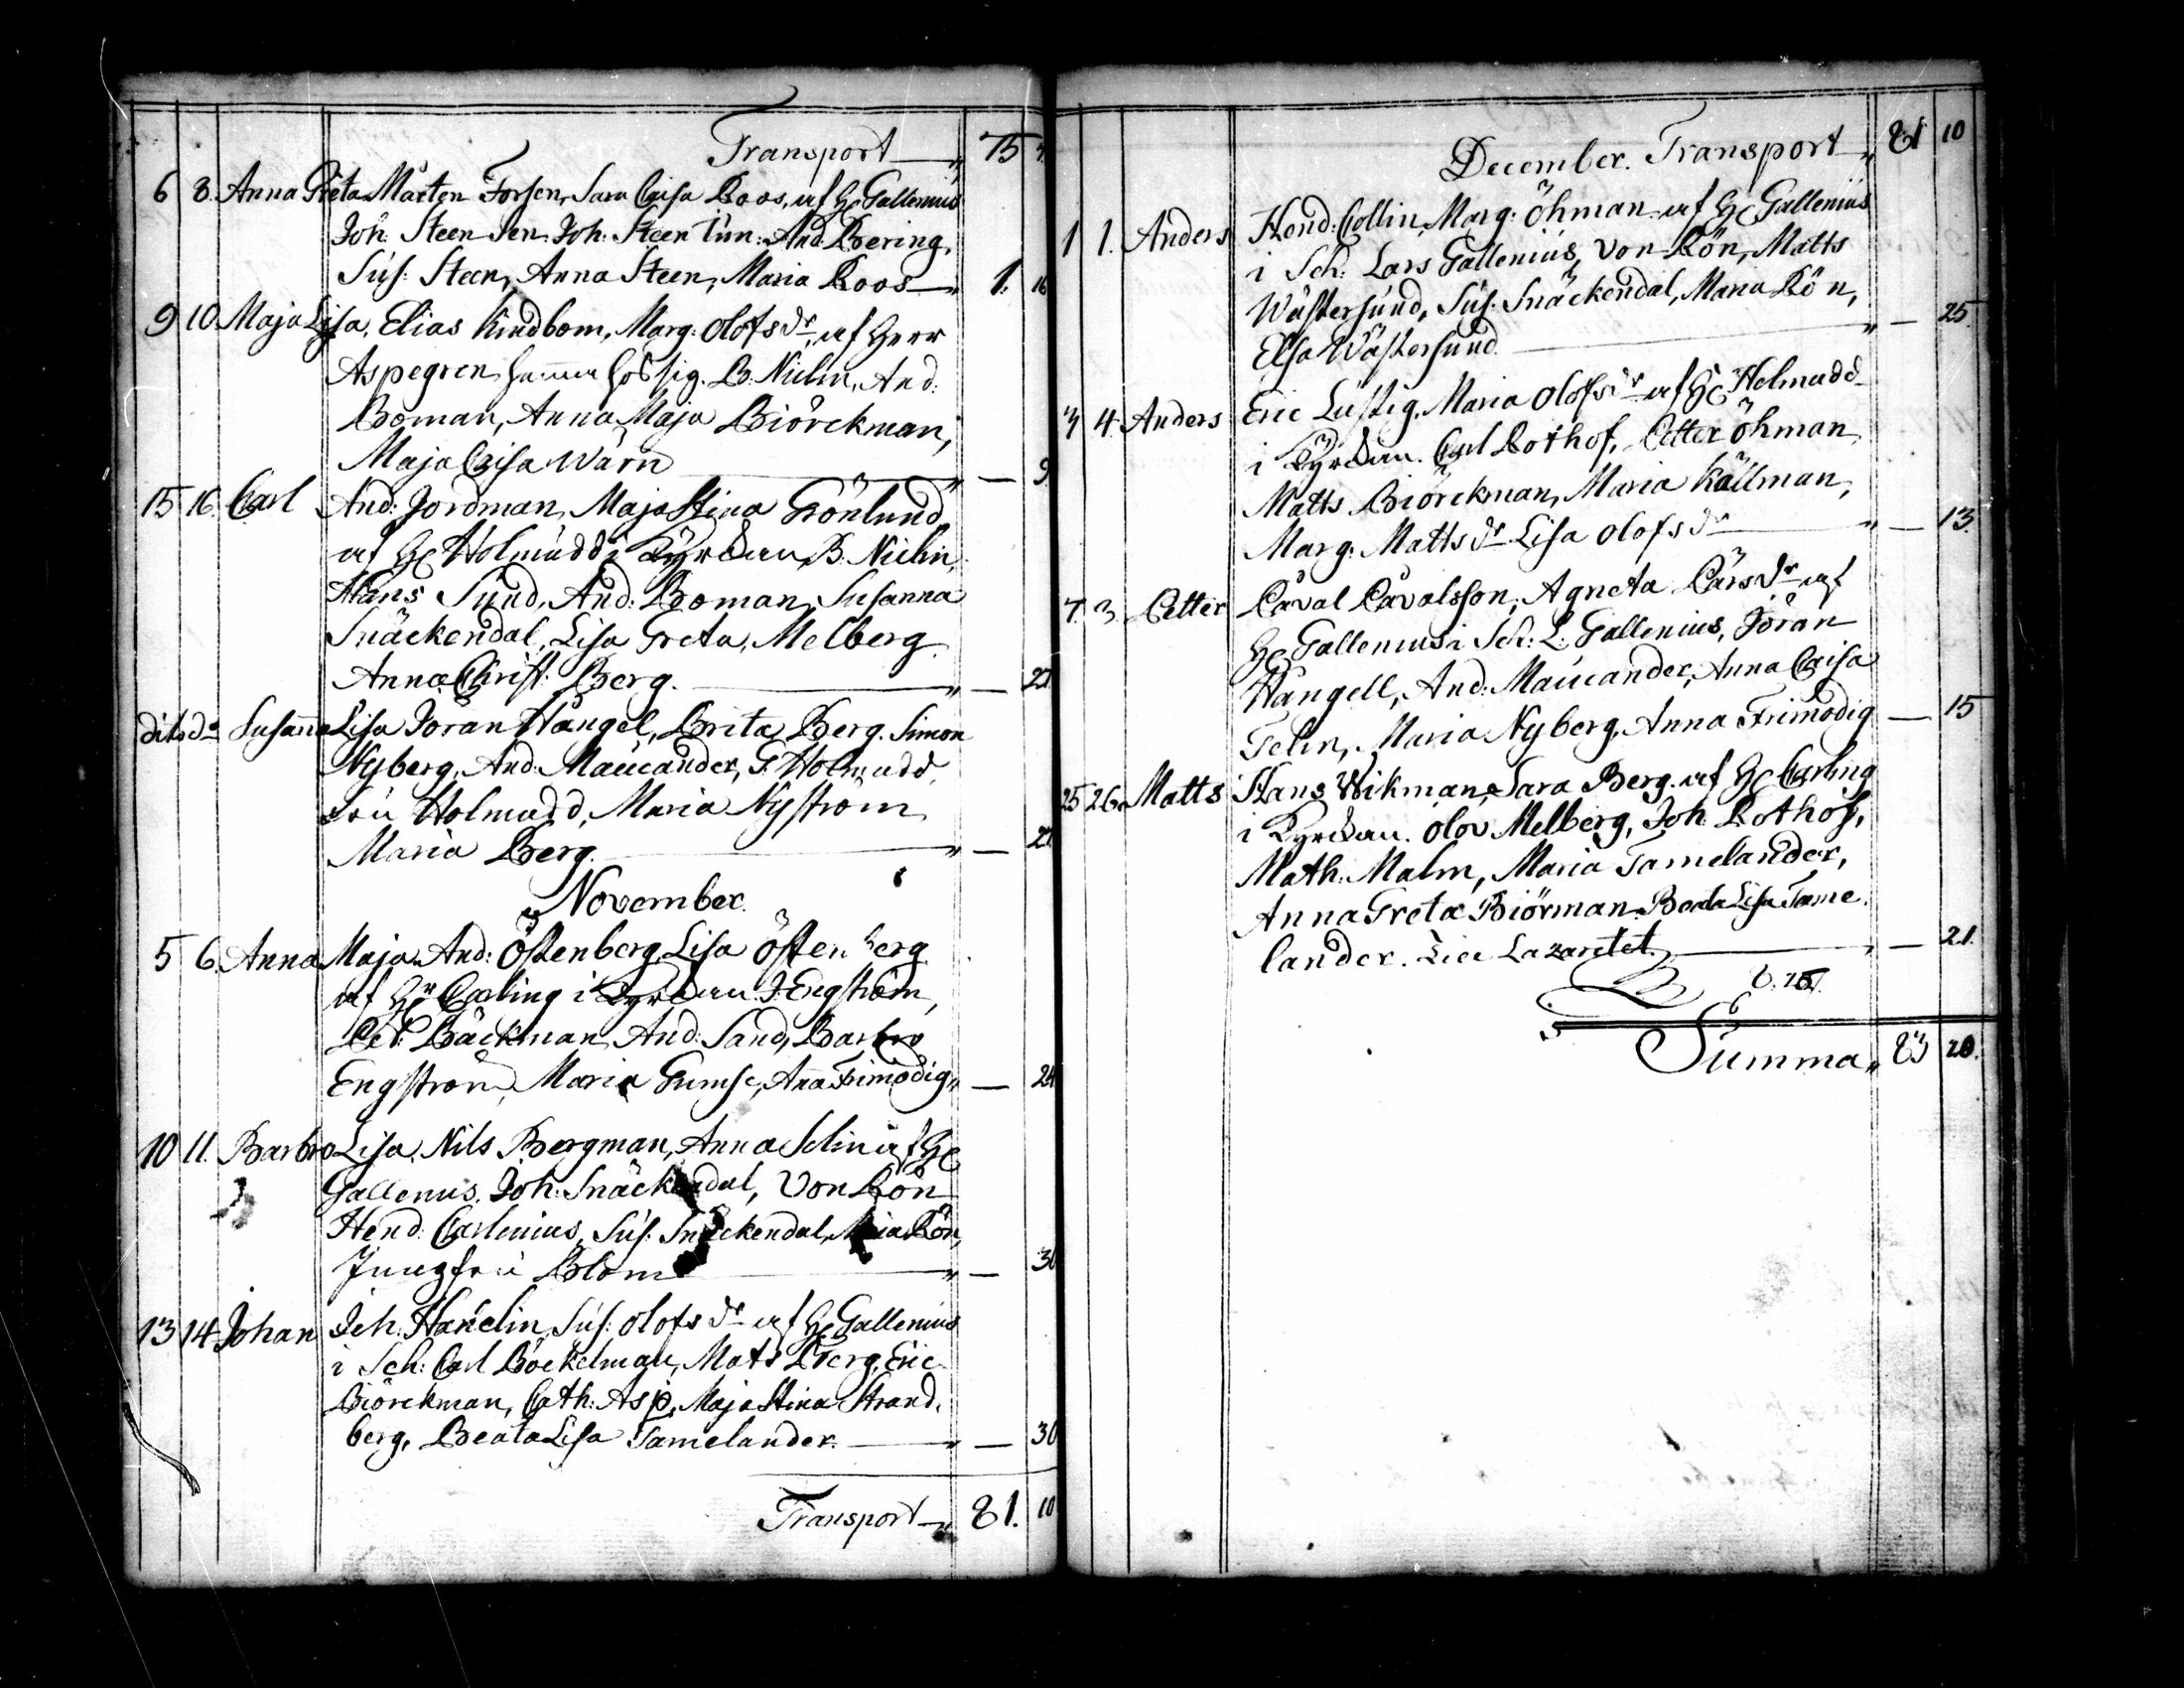 Transport 75
6 8. Anna Greta Mårten Forsen, Sara Caisa Roos, af H: Gallenius
Joh: Steen Sen. Joh: Steen Iun: And: Bering,
Sus: Steen, Anna Steen, Maria Roos 1. 16
9 10. Maja Lisa, Elias Lindbom, Marg: Olofsdr, af Herr
Aspegren B: Nielin, And:
Boman, Anna Maja Biörckman,
Maja Caisa Wärn — 9
15 16. Carl And: Jordman, Maja Stina Grönlund
af H: Holmudd i Kyrckan, B: Nielin,
Hans Sund, And: Boman, Susanna
Snäckendal, Lisa Greta Melberg
Anna Christ: Berg. —
dito do Susanna Lisa Joran Hangel, Brita Berg. Simon
Nyberg, And: Maucander, G: Holmudd,
Fru Holmudd, Maria Nyström
Maria Berg. —
November.
5 6. Anna Maja And: Östenberg Lisa Östenberg
af Hr Carling i Kyrckan. J: Engström,
Pet: Bäckman, And: Sand, Barbro
Engström, Maria Gumse, Anna Frimodig — 24
10 11. Barbro Lisa. Nils Bergman, Anna Selin af H:
Gallenius. Joh: Snäckendal, Von Kön
Hend: Carlenius, Sus: Snäckendal, Maria Kön,
Jungfru Blom — 30
13 14 Johan Joh: Hanelin, Sus: Olofsdr af H: Gallenius
i Sch: Carl Böckelman, Mats Berg, Eric
Biörckman, Cath: Asp, Maja Stina Strand-
berg, Beata Lisa Tamelander. — 30
Transport 81. 10
December. Transport 81 10
1 1. Anders Hend: Collin, Marg: Öhman af H: Gallenius
i Sch: Lars Gallenius, Von Kön, Matts
Wästersund, Sus: Snäckendal, Maria Kön,
Elsa Wästersund. — 25.
3 4. Anders Eric Lustig, Maria Olofsdr af H: Holmudd
i Kyrckan. Carl Rothof, Petter Öhman
Matts Biörckman, Maria Källman,
Marg: Mattsdr Lisa Olofsdr — 13.
7. 3 Petter Påval Påvalsson, Agneta Larsdr af
H: Gallenius i Sch: L: Gallenius, Jöran
Hangell, And: Maucander, Anna Caisa
Felin, Maria Nyberg, Anna Frimodig — 15
25 26. Matts Hans Wikman, Sara Berg. af H: Carling
i Kyrckan. Olov Melberg, Joh: Rothof,
Math: Malm, Maria Tamelander,
Anna Greta Biörman Beata Lisa Tame-
lander. Lazaretet — 21.
Summa 83 20.